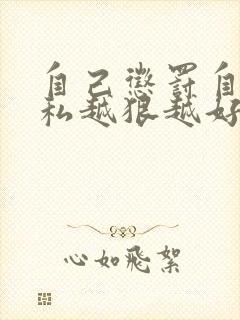 自己惩罚自
私越狠越好
心如飛絮